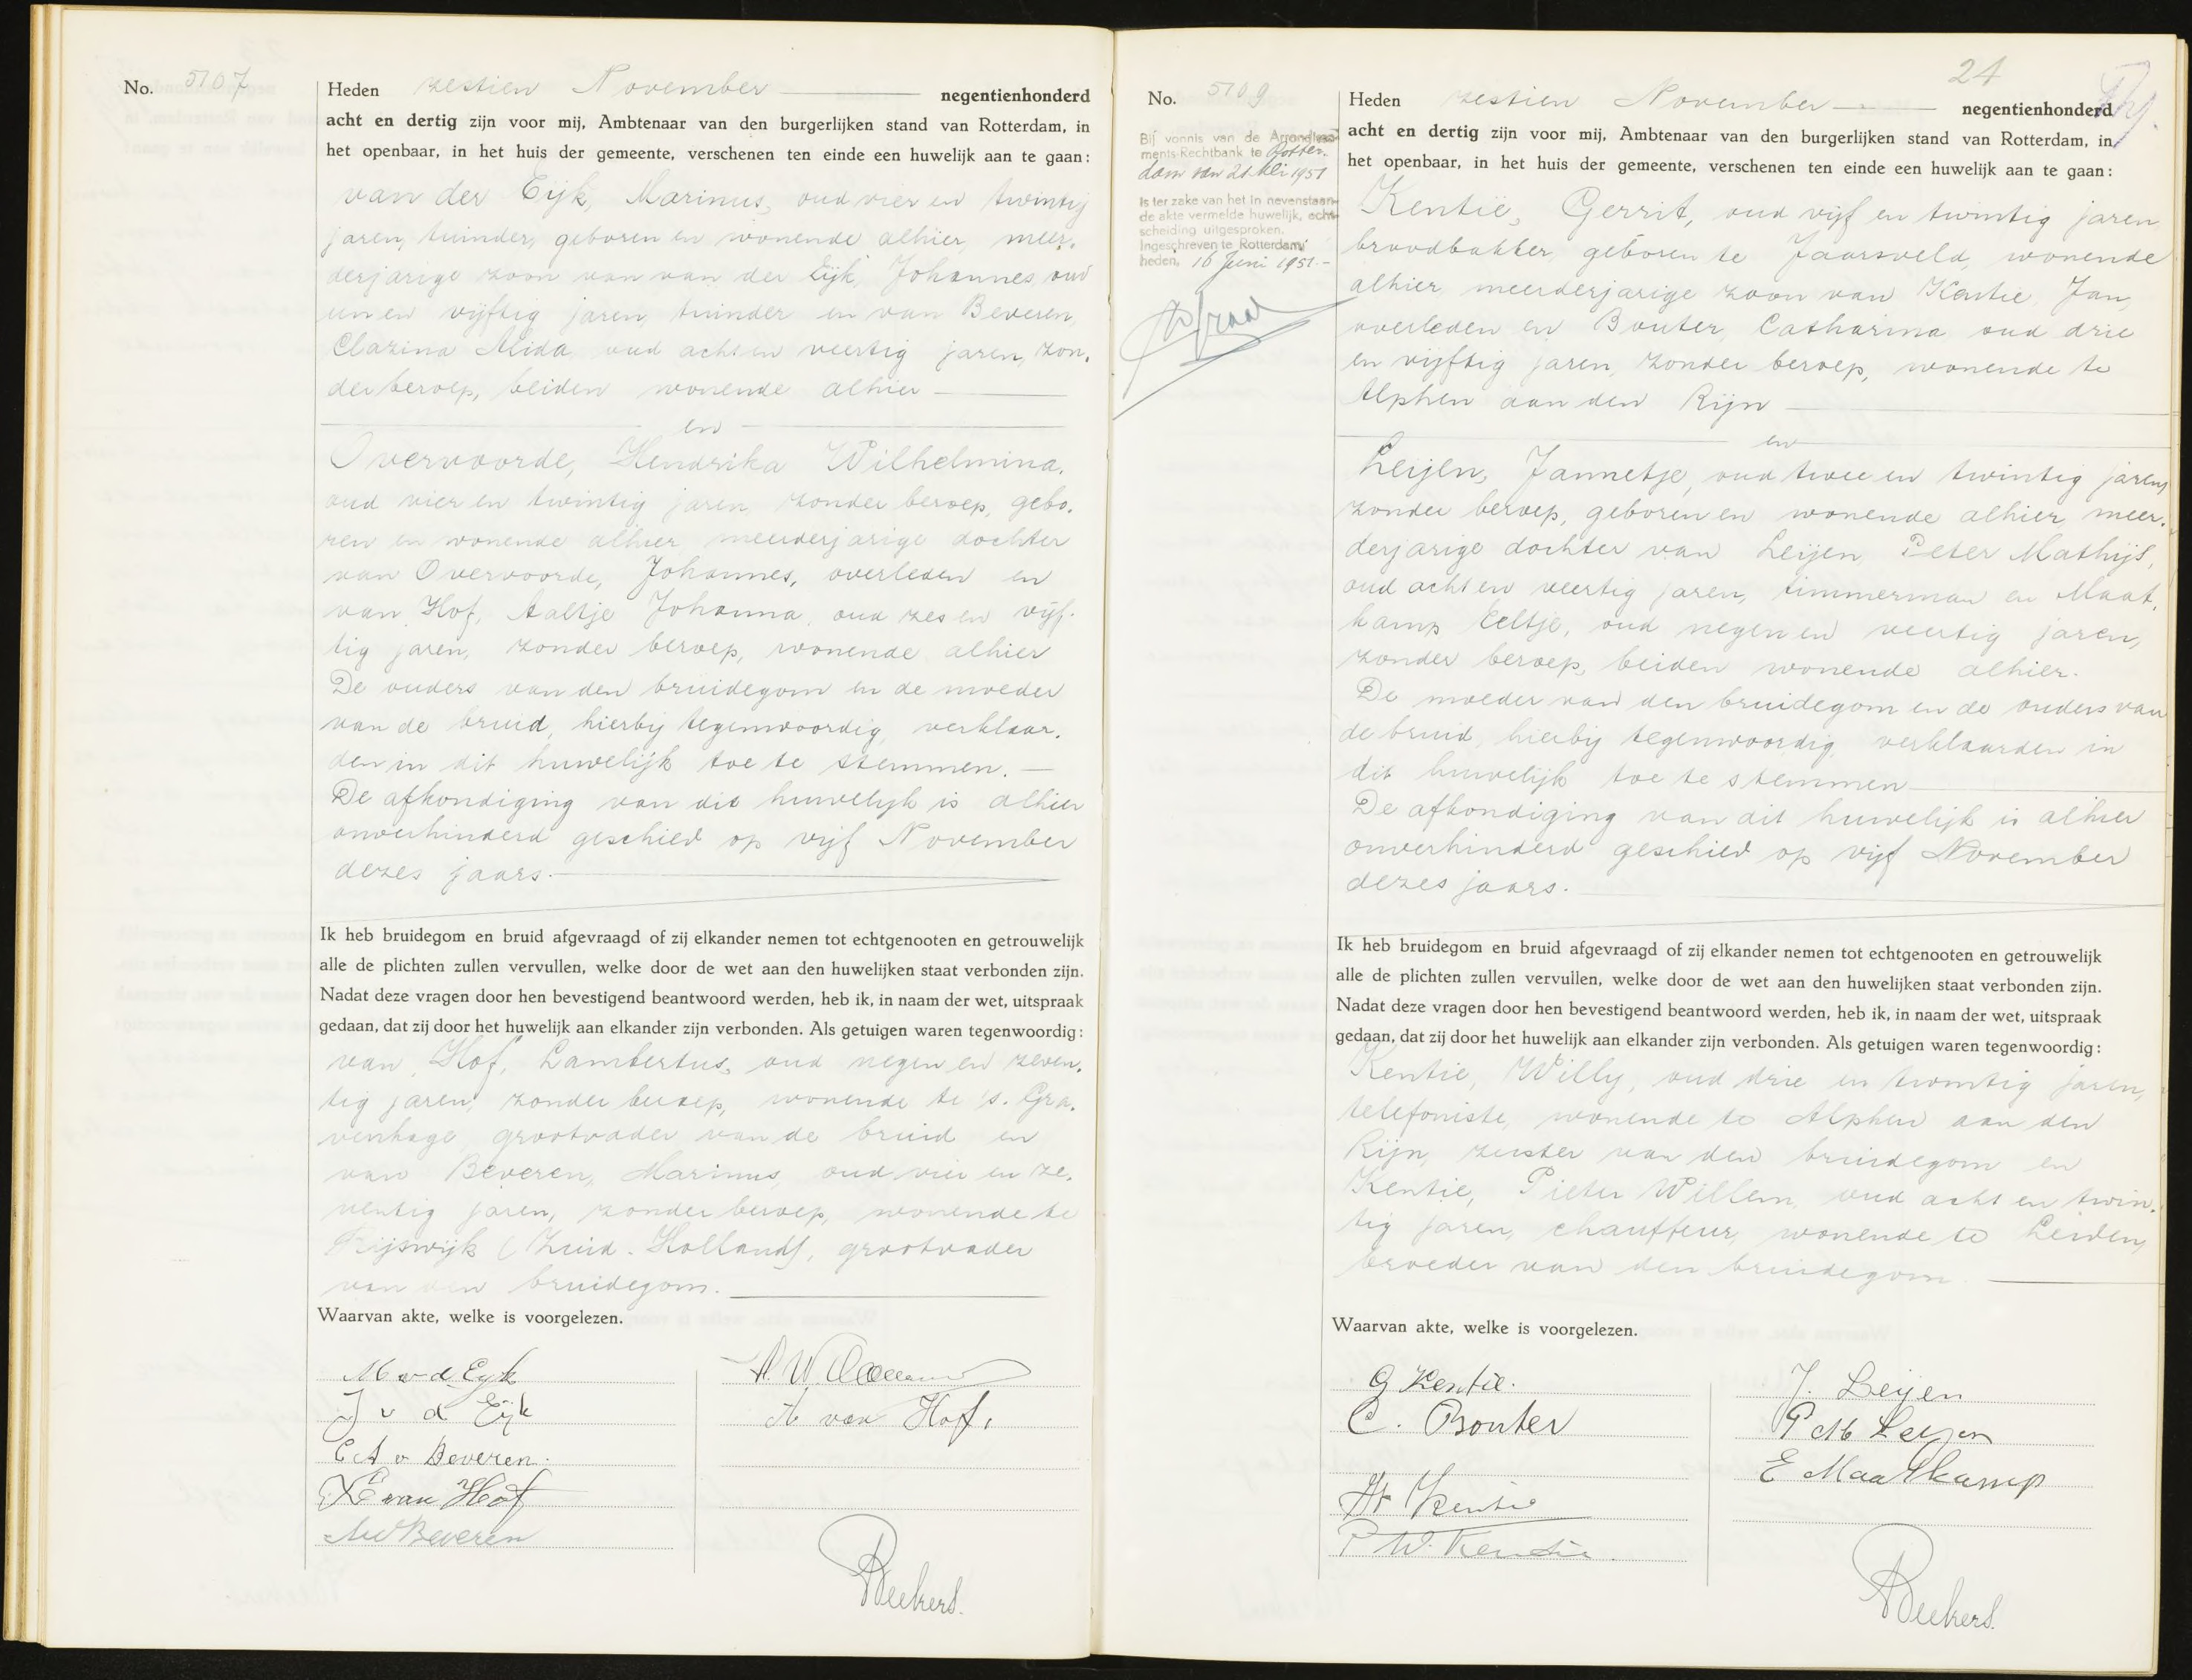 No. 5107
Heden zestien November negentienhonderd
acht en dertig zijn voor mij, Ambtenaar van den burgerlijken stand van Rotterdam, in
het openbaar, in het huis der gemeente, verschenen ten einde een huwelijk aan te gaan:
van der Eijk, Marinus, oud vier en twintig
jaren, tuinder, geboren en wonende alhier, meer.
derjarige zoon van van der Eijk, Johannes, oud
een en vijftig jaren, tuinder en van Beveren,
Clazina Alida, oud acht en veertig jaren, zon.
der beroep, beiden wonende alhier
en
Overvoorde, Hendrika Wilhelmina,
oud vier en twintig jaren, zonder beroep, gebo.
ren en wonende alhier, meerderjarige dochter
van Overvoorde, Johannes, overleden en
van Hof, Aaltje Johanna, oud zes en vijf.
tig jaren, zonder beroep, wonende alhier
De ouders van den bruidegom en de moeder
van de bruid, hierbij tegenwoordig, verklaar.
den in dit huwelijk toe te stemmen.
De afkondiging van dit huwelijk is alhier
onverhinderd geschied op vijf November
dezes jaars.
Ik heb bruidegom en bruid afgevraagd of zij elkander nemen tot echtgenooten en getrouwelijk
alle de plichten zullen vervullen, welke door de wet aan den huwelijken staat verbonden zijn.
Nadat deze vragen door hen bevestigend beantwoord werden, heb ik, in naam der wet, uitspraak
gedaan, dat zij door het huwelijk aan elkander zijn verbonden. Als getuigen waren tegenwoordig:
van Hof, Lambertus, oud negen en zeven.
tig jaren, zonder beroep, wonende te 's. Gra.
venhage, grootvader van de bruid en
van Beveren, Marinus, oud vier en ze.
ventig jaren, zonder beroep, wonende te
Rijswijk (Zuid-Holland), grootvader
van den bruidegom.
Waarvan akte, welke is voorgelezen.
M v d Eyk
J v d Eijk
A van Hof.
C A v Beveren.
L van Hof
M v Beveren
24
No. 5109
Bij vonnis van de Arrondisse-
ments-Rechtbank te Rotter-
dam van 21 1951
Is ter zake van het in nevenstaan-
de akte vermelde huwelijk, echt-
scheiding uitgesproken.
Ingeschreven te Rotterdam,
heden, 16 Juni 1951.-
Heden zestien November negentienhonderd
acht en dertig zijn voor mij, Ambtenaar van den burgerlijken stand van Rotterdam, in
het openbaar, in het huis der gemeente, verschenen ten einde een huwelijk aan te gaan:
Kentie, Gerrit, oud vijf en twintig jaren
broodbakker, geboren te Jaarsveld, wonende
alhier, meerderjarige zoon van Kentie, Jan,
overleden en Bouter, Catharina oud drie
en vijftig jaren, zonder beroep, wonende te
Alphen aan den Rijn
en
Leijen, Jannetje, oud twee en twintig jaren,
zonder beroep, geboren en wonende alhier, meer.
derjarige dochter van Leijen, Peter Mathijs,
oud acht en veertig jaren, timmerman en Maat.
kamp Eeltje, oud negen en veertig jaren,
zonder beroep, beiden wonende alhier.
De moeder van den bruidegom en de ouders van
de bruid, hierbij tegenwoordig, verklaarden in
dit huwelijk toe te stemmen
De afkondiging van dit huwelijk is alhier
onverhinderd geschied op vijf November
dezes jaars.
Ik heb bruidegom en bruid afgevraagd of zij elkander nemen tot echtgenooten en getrouwelijk
alle de plichten zullen vervullen, welke door de wet aan den huwelijken staat verbonden zijn.
Nadat deze vragen door hen bevestigend beantwoord werden, heb ik, in naam der wet, uitspraak
gedaan, dat zij door het huwelijk aan elkander zijn verbonden. Als getuigen waren tegenwoordig:
Kentie, Willy, oud drie en twintig jaren,
telefoniste, wonende te Alphen aan den
Rijn, zuster van den bruidegom en
Kentie, Pieter Willem, oud acht en twin.
tig jaren, chauffeur, wonende te Leiden,
broeder van den bruidegom.
Waarvan akte, welke is voorgelezen.
G Kentie.
J. Leijen
C. Bouter
P M Leijen
E Maatkamp
W Kentie
P. W. Kentie.